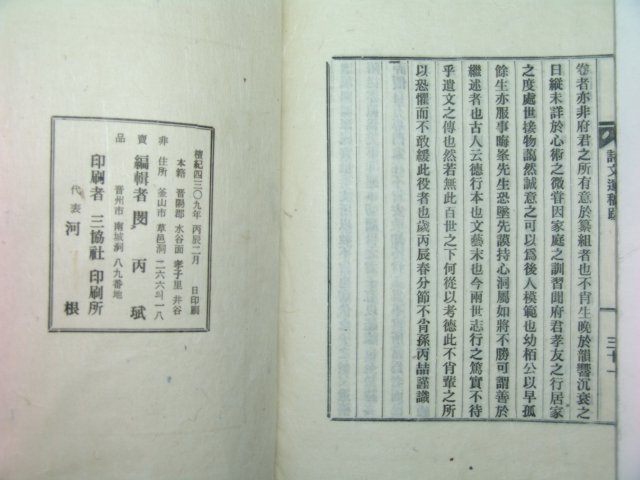 詩文遺稿跋
三十一
卷者亦非府君之所有意於纂組者也不肖生晚於韻響沉衰之
日縱未詳於心術之微嘗因家庭之訓習聞府君孝友之行居家
之度處世接物藹然誠意之可以爲後人模範也幼栢公以早孤
餘生亦服事晦峯先生恐墜先謨持心洞屬如將不勝可謂善於
繼述者也古人云德行本也文藝末也今兩世志行之篤實不待
乎遺文之傳也然若無此百世之下何從以考德此不肖輩之所
以恐懼而不敢緩此役者也歲丙辰春分節不肖孫丙喆謹識
檀紀四三〇九年 丙辰二月 日印刷
本籍 晋陽郡 水谷面 孝子里 井谷
非 住所 釜山市 草邑洞 二六六의一八
賣 編輯者 閔丙斌
品 晋州市 南城洞 八九番地
印刷者 三協社 印刷所
代表 河 根